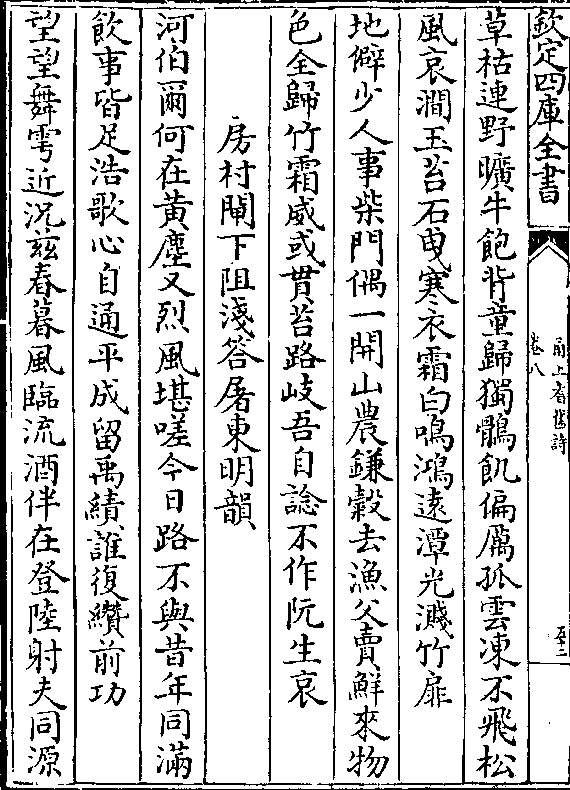 欽定四庫全書
甬上耆舊詩
卷八
草枯連野曠牛飽背童歸獨鶻飢偏厲孤雲凍不飛松
風哀澗玉苔石曳寒衣霜白鳴鴻遠潭光濺竹扉
地僻少人事柴門偶一開山農鎌穀去漁父賣鮮來物
色全歸竹霜威或貫苔路岐吾自諗不作阮生哀
房村閘下阻淺答屠東明韻
河伯爾何在黃塵又烈風堪嗟今日路不與昔年同滿
飲事皆足浩歌心自通平成留禹績誰復纘前功
望望舞雩近況兹春暮風臨流酒伴在登陸射夫同源